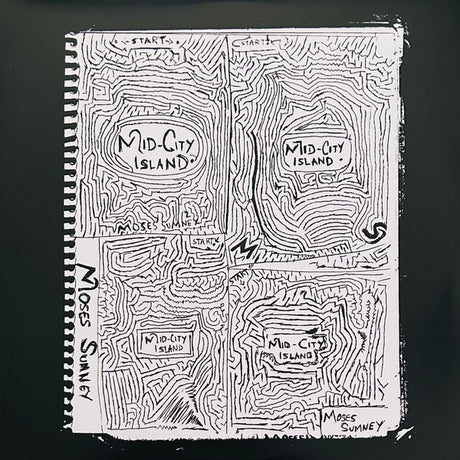 START
MID-CITY
ISLAND.
MOSES SUMNEY
START
MID-CITY
ISLAND.
M S
START
MID-CITY
ISLAND
MOSES SUMNEY
START
MID-CITY
ISLAND
MOSES
SUMNEY
MOSES